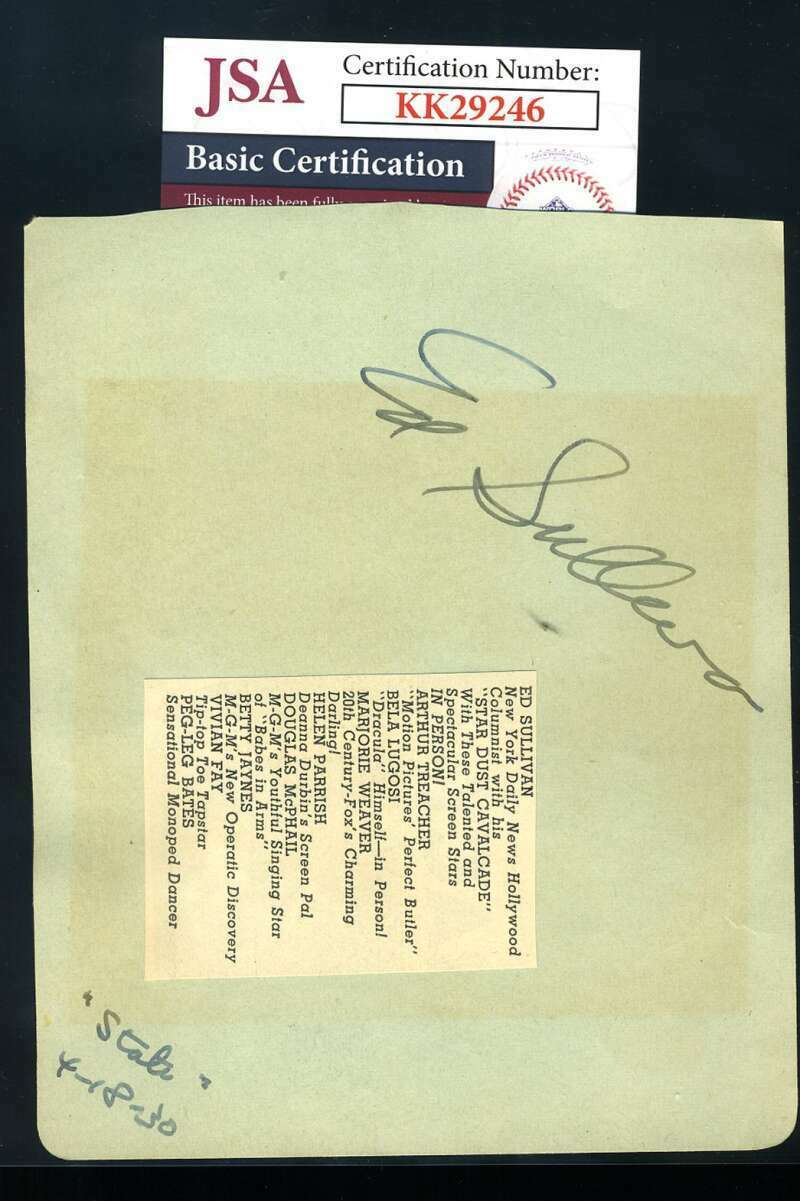 JSA
Certification Number:
KK29246
Basic Certification
This item has been
Ed Sullivan
ED SULLIVAN
New York Daily News Hollywood
Columnist with his
"STAR DUST CAVALCADE"
With These Talented and
Spectacular Screen Stars
IN PERSON!
ARTHUR TREACHER
"Motion Pictures' Perfect Butler"
BELA LUGOSI
"Dracula" Himself—in Person!
MARJORIE WEAVER
20th Century-Fox's Charming
Darling!
HELEN PARRISH
Deanna Durbin's Screen Pal
DOUGLAS McPHAIL
M-G-M's Youthful Singing Star
of "Babes in Arms"
BETTY JAYNES
M-G-M's New Operatic Discovery
VIVIAN FAY
Tip-top Toe Tapstar
PEG-LEG BATES
Sensational Monoped Dancer
"State"